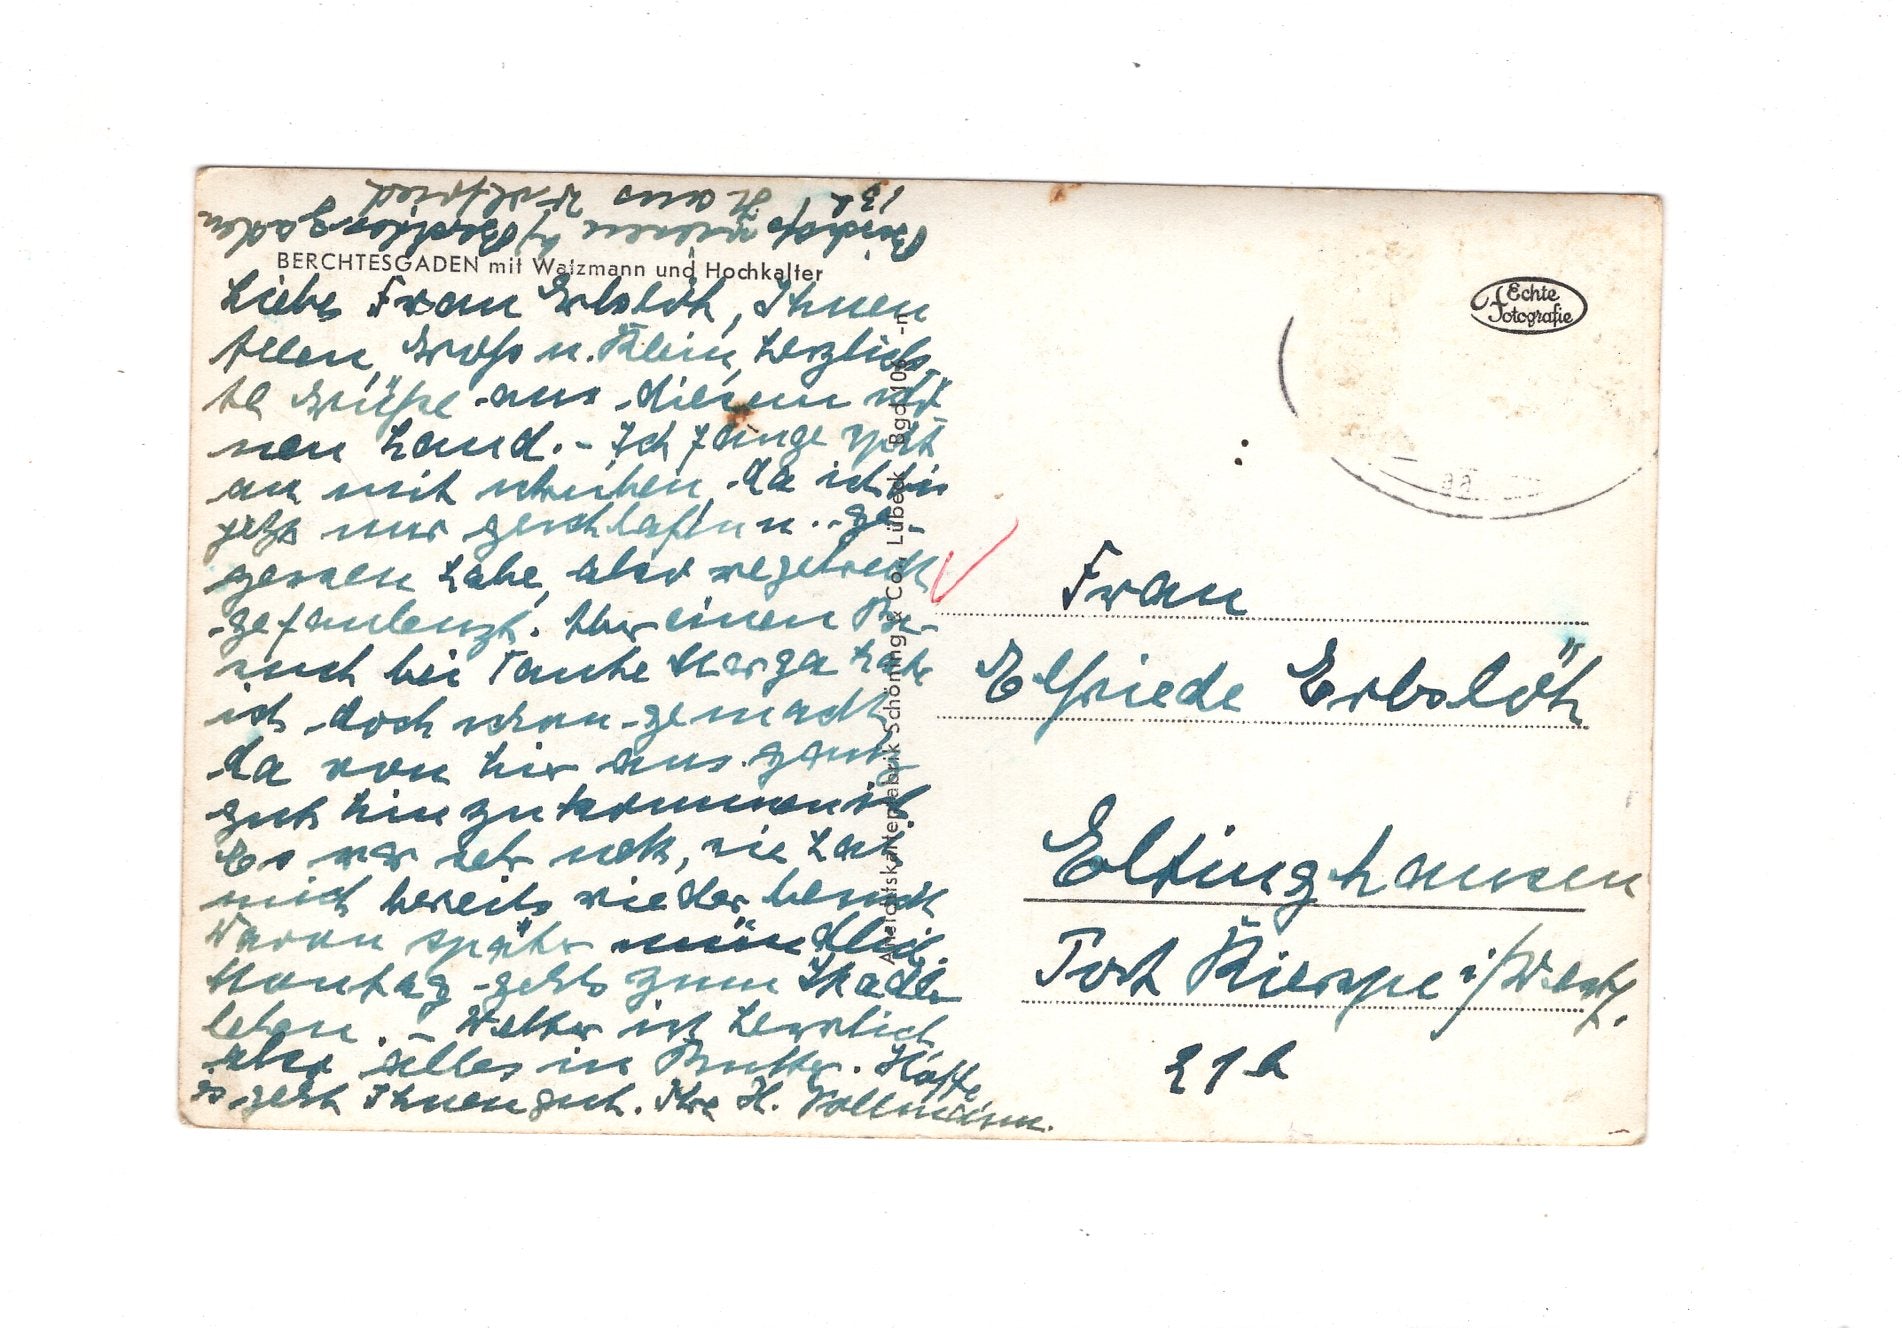 Haus Wilfried
Bischofswiesen b/ Berchtesgaden
BERCHTESGADEN mit Watzmann und Hochkalter
Liebe Frau Erbslöh, Ihnen
allen, Groß u. Klein, herzlich-
te Grüße aus diesem schö-
nen Land. - Ich fange spät
an mit schreiben, da ich bis
jetzt nur geschlafen u. ge-
gessen habe, also regelrecht
gefaulenzt. Aber einen Be-
such bei Tante Marga habe
ich doch schon gemacht
da von hier aus ganz
gut hinzukommen ist
Es war sehr nett, sie hat
mich bereits wieder besucht
Davon später mündlich.
Montag gehts zum
leben. - Wetter ist herrlich
also alles in Butter. Hoffe
es geht Ihnen gut. Ihre H. Vollmann.
Ansichtskartenfabrik Schöning & Co., Lübeck Bgd 108 -n
Echte
Fotografie
Frau
Elfriede Erbslöh
Eltinghausen
Post Kierspe i/Westf.
21b